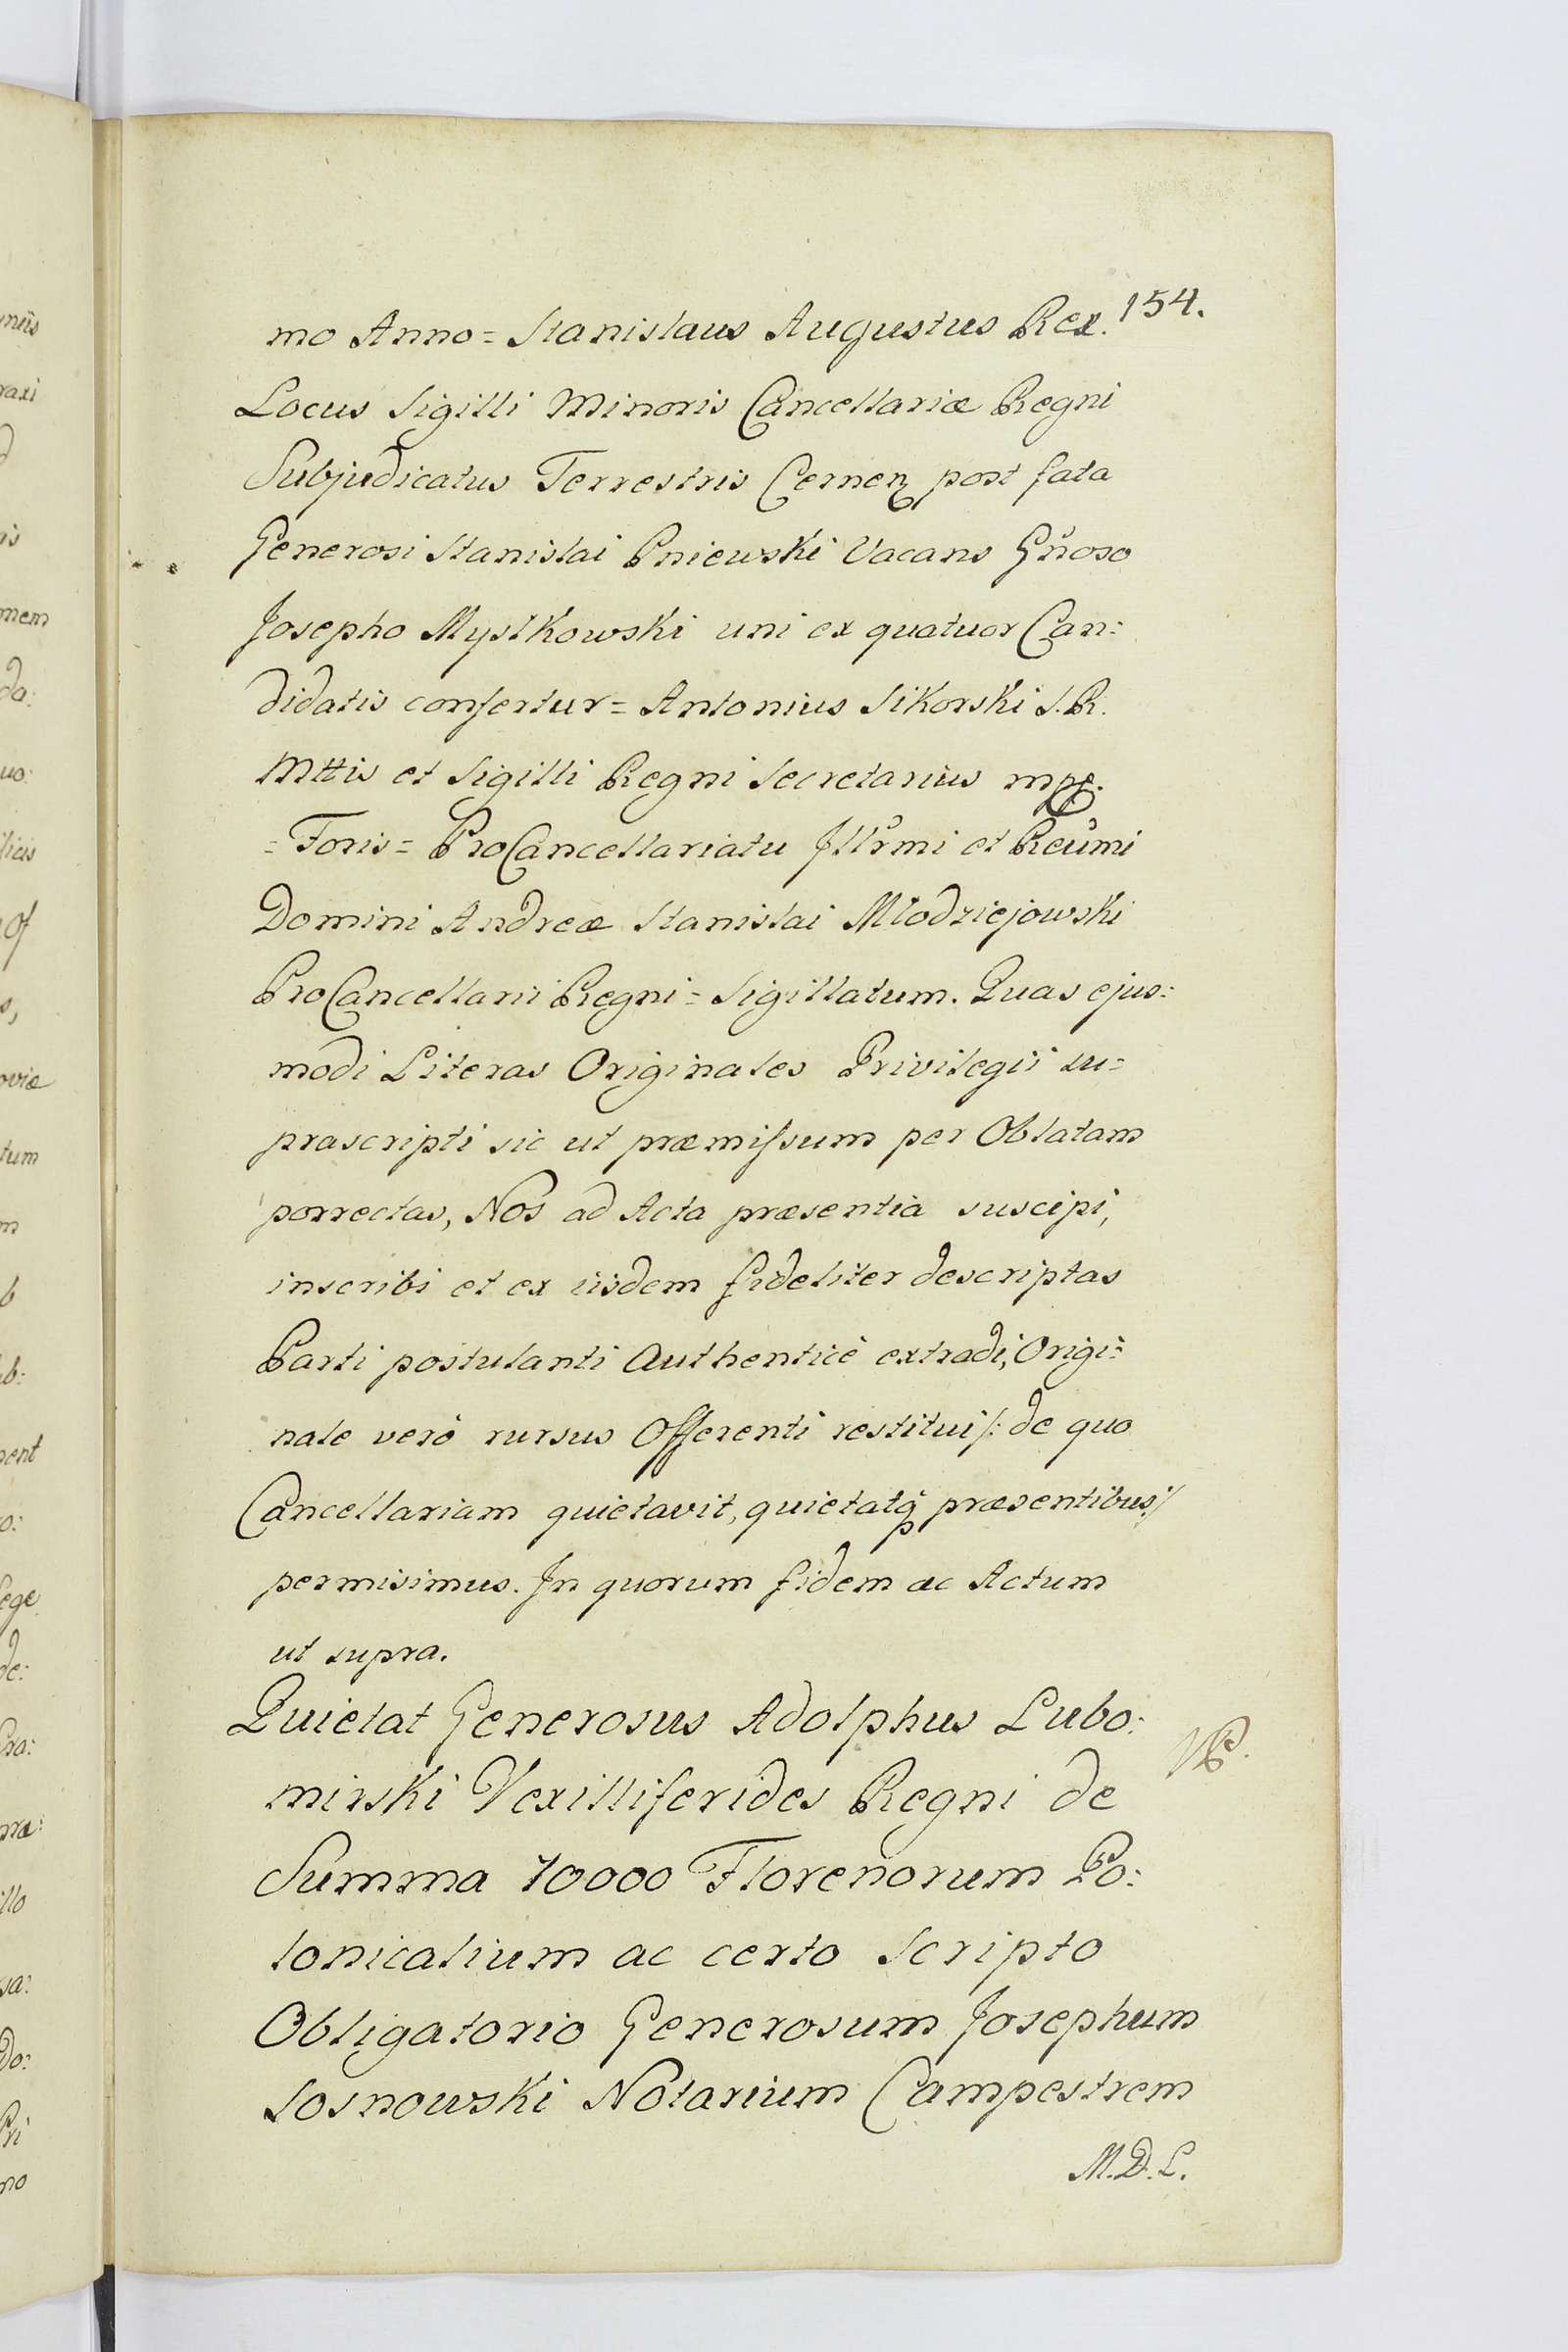 154.
mo Anno = Stanislaus Augustus Rex.
Locus Sigilli Minoris Cancellariæ Regni
Subjudicatus Terrestris Cernen post fata
Generosi Stanislai Pniewski Vacans Gñoso
Josepho Mystkowski uni ex quatuor Can:
didatis confertur = Antonius Sikorski S. R.
Mttis et Sigilli Regni Secretarius mpp.
= Foris = ProCancellariatu Jllrmi et Reumi
Domini Andreæ Stanislai Młodziejowski
ProCancellarii Regni = Sigillatum. Quas ejus:
modi Literas Originales Privilegii su=
prascripti sic ut præmissum per Oblatam
porrectas, Nos ad Acta præsentia suscipi,
inscribi et ex iisdem fideliter descriptas
Parti postulanti Authenticè extradi, Origi=
nale verò rursus Offerenti restitui /: de quo
Cancellariam quietavit, quietatq præsentibus :/
permisimus. Jn quorum fidem ac Actum
ut supra.
Quietat Generosus Adolphus Lubo:
mirski Vexilliferides Regni de
Summa 10000 Florenorum Po:
lonicalium ac certo Scripto
Obligatorio Generosum Josephum
Sosnowski Notarium Campestrem
M. D. L.